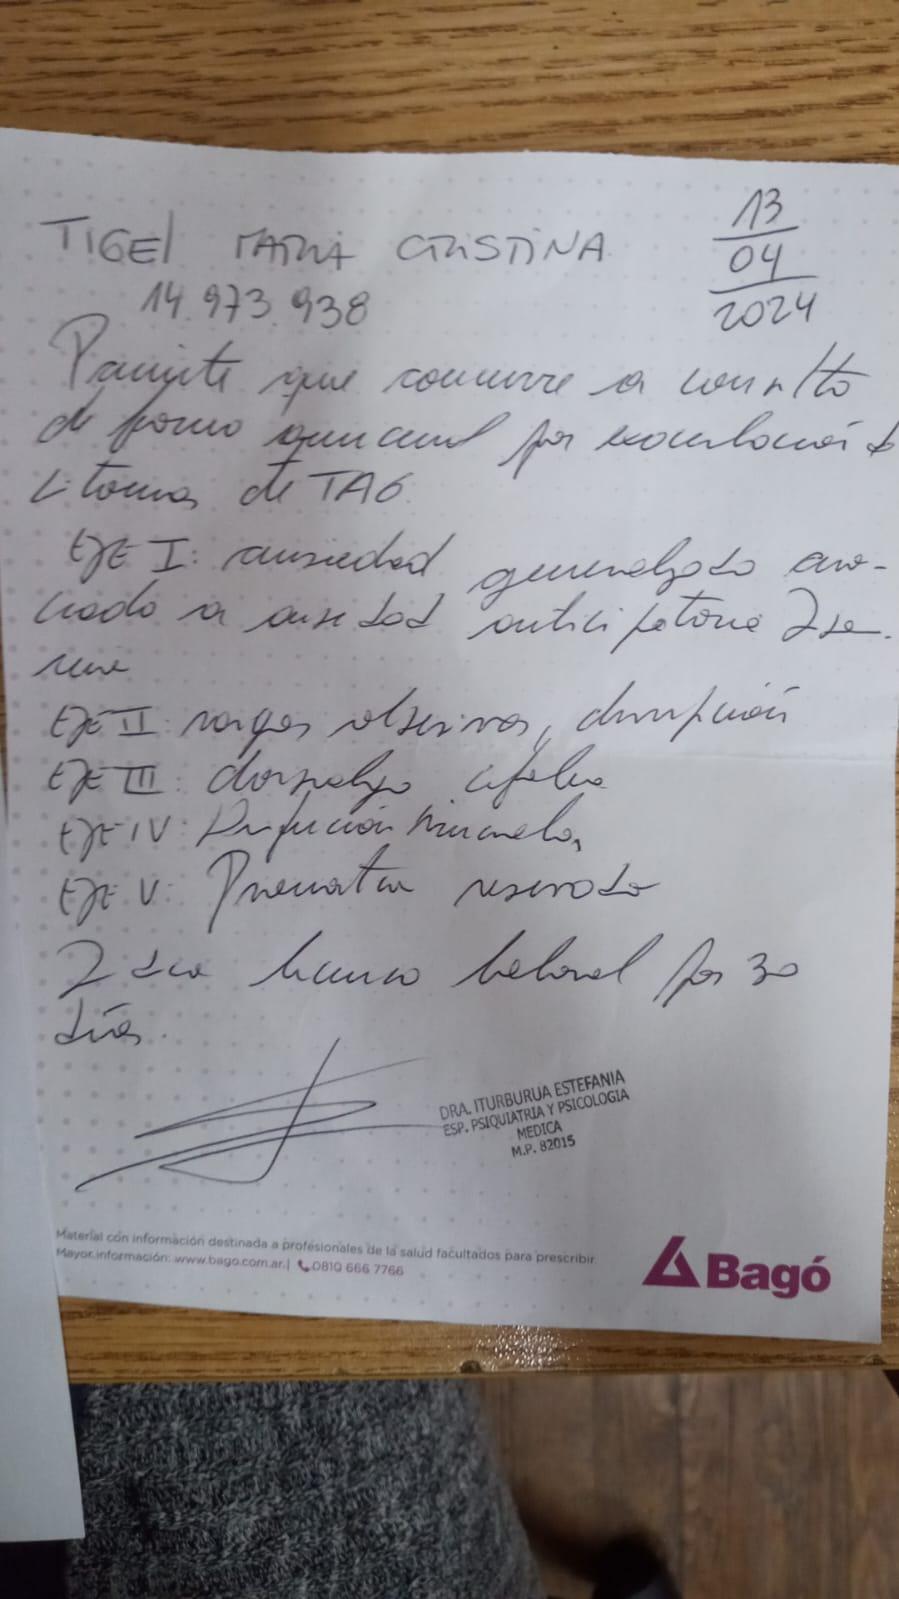 TIGEL MARIA CRISTINA
13
04
2024
14.973.938
Paciente que concurre a consulta
de forma quincenal por exacerbación de
síntomas de TAG.
EJE I: ansiedad generalizada aso-
ciado a ansiedad anticipatoria
EJE II: rasgos obsesivos,
EJE III:
EJE IV:
EJE V: reservado
licencia laboral por 30
días.
DRA. ITURBURUA ESTEFANIA
ESP. PSIQUIATRIA Y PSICOLOGIA
MEDICA
M.P. 82015
Material con información destinada a profesionales de la salud facultados para prescribir.
Mayor información: www.bago.com.ar | 0810 666 7766
Bagó